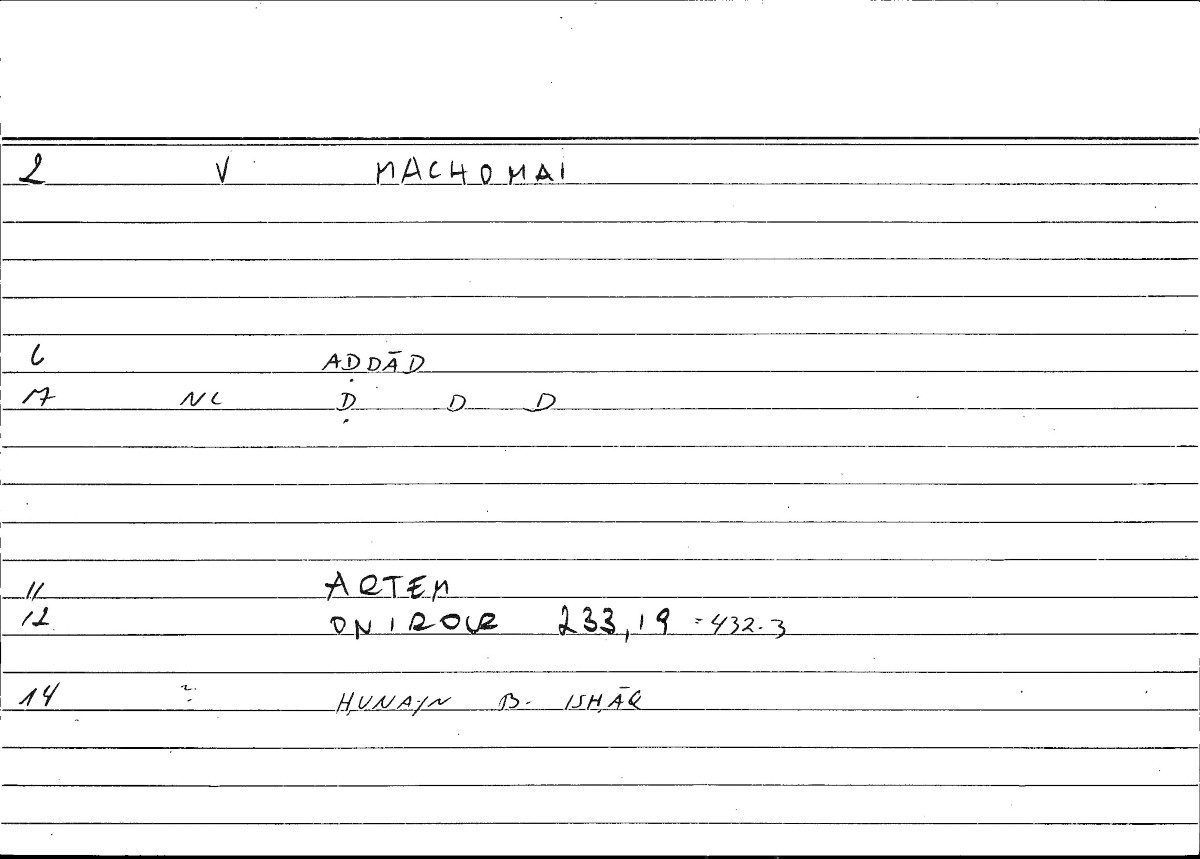 2 V MACHOMAI
6 AḌDĀD
17 NC Ḍ D D
11 ARTEM
12 ONIROCR 233,19 = 432.3
14 ? ḤUNAYN B. ISḤĀQ